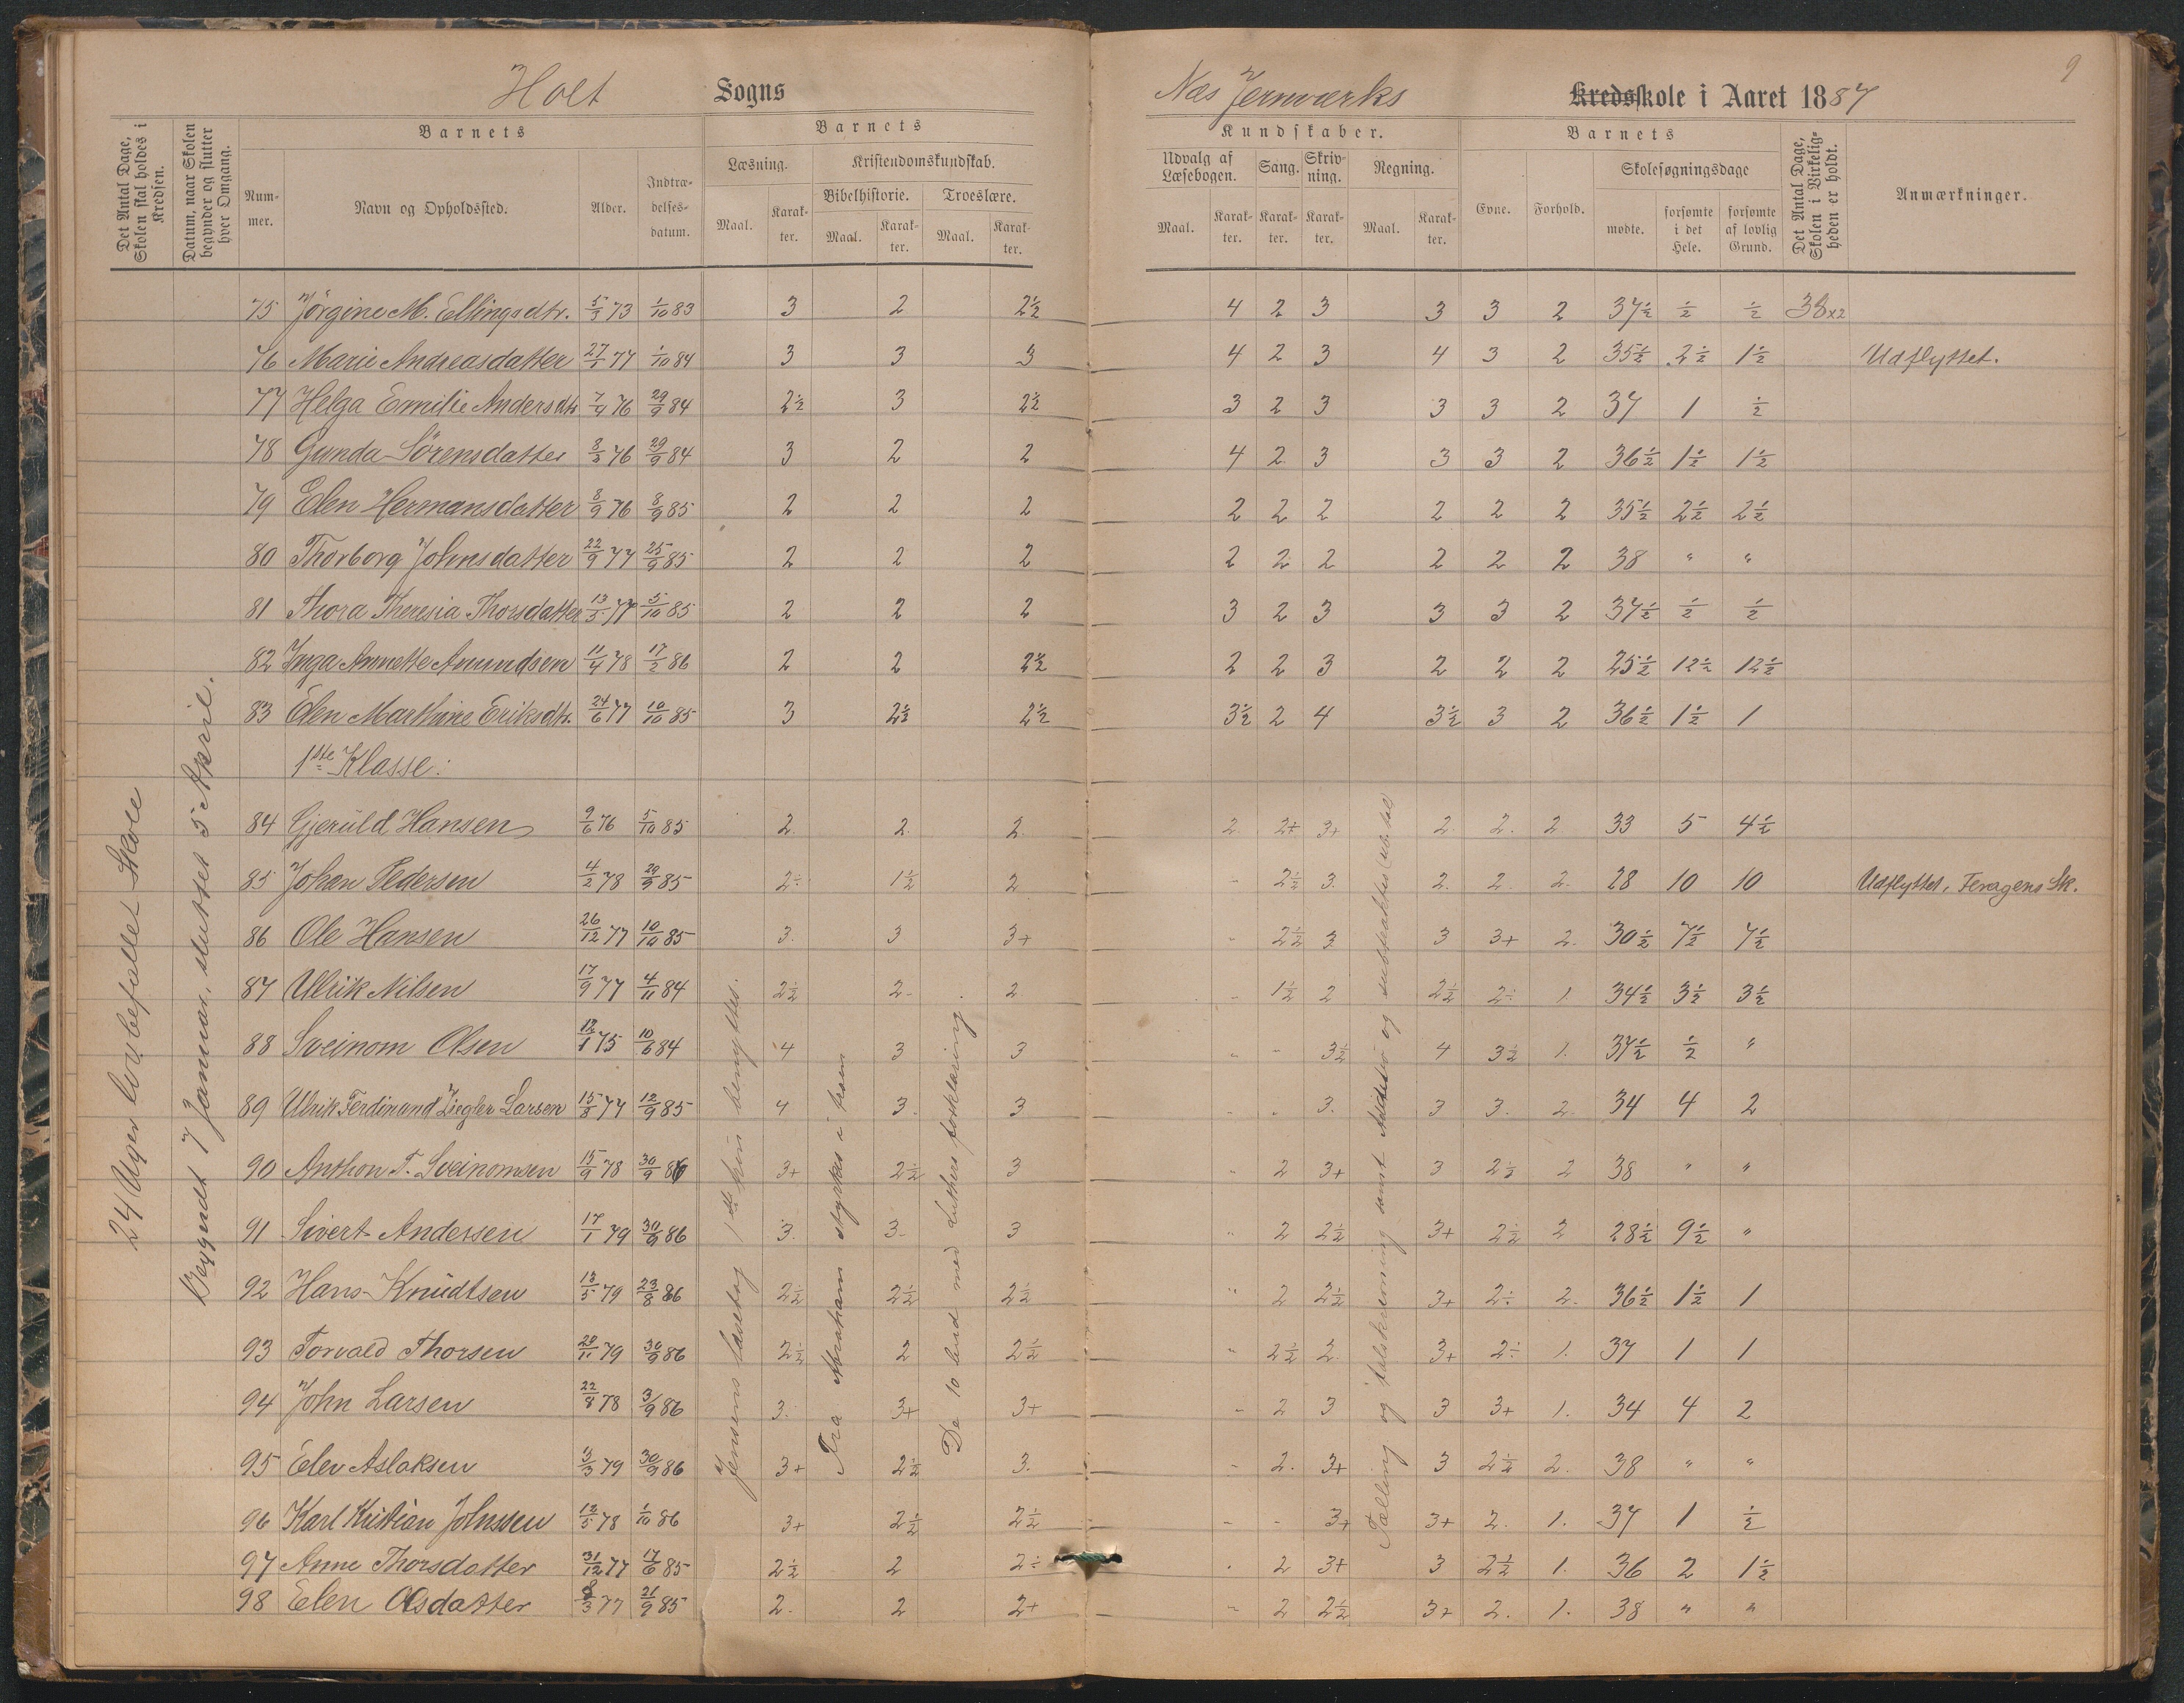 9
Holt Sogns Næs Jernværks Kredsskole i Aaret 1887
Det Antal Dage, Skolen skal holdes i Kredsen.
Datum, naar Skolen begynder og slutter hver Omgang.
Barnets
Nummer.
Navn og Opholdssted.
Alder.
Indtrædelsesdatum.
Barnets
Læsning.
Maal.
Karakter.
Kristendomskundskab.
Bibelhistorie.
Maal.
Karakter.
Troeslære.
Maal.
Karakter.
Kundskaber.
Udvalg af Læsebogen.
Maal.
Karakter.
Sang.
Karakter.
Skrivning.
Karakter.
Regning.
Maal.
Karakter.
Barnets
Evne.
Forhold.
Skolesøgningsdage
mødte.
forsømte i det Hele.
forsømte af lovlig Grund.
Det Antal Dage, Skolen i Virkeligheden er holdt.
Anmærkninger.
24 Uger lovbefallet Skole
Begyndt 7 Januar, sluttet 5 April.
75 Jørgine M. Ellingsdtr. 5/3 73 1/10 83 3 2 2½ 4 2 3 3 3 2 37½ ½ ½ 38x2
76 Marie Andreasdatter 27/5 77 1/10 84 3 3 3 4 2 3 4 3 2 35½ 2½ 1½ Udflyttet.
77 Helga Emilie Andersdtr 7/4 76 29/9 84 2½ 3 2½ 3 2 3 3 3 2 37 1 ½
78 Gunda Sörensdatter 8/3 76 29/9 84 3 2 2 4 2 3 3 3 2 36½ 1½ 1½
79 Elen Hermansdatter 8/9 76 8/9 85 2 2 2 2 2 2 2 2 2 35½ 2½ 2½
80 Thorborg Johnsdatter 22/9 77 25/9 85 2 2 2 2 2 2 2 2 2 38 " "
81 Thora Theresia Thorsdatter 13/5 77 5/10 85 2 2 2 3 2 3 3 3 2 37½ ½ ½
82 Inga Annette Anundsen 11/4 78 17/2 86 2 2 2½ 2 2 3 2 2 2 25½ 12½ 12½
83 Elen Marthine Eriksdtr. 24/6 77 10/10 85 3 2½ 2½ 3½ 2 4 3½ 3 2 36½ 1½ 1
1ste Klasse:
84 Gjeruld Hansen 9/6 76 5/10 85 2. 2. 2. 2. 2+ 3+ 2. 2. 2 33 5 4½
85 Johan Pedersen 4/2 78 29/9 85 2÷ 1½ 2 - 2½ 3. 2. 2. 2. 28 10 10 Udflyttet, Feragens Sk.
86 Ole Hansen 26/12 77 10/10 85 3. 3 3+ - 2½ 3 3 3+ 2. 30½ 7½ 7½
87 Ulrik Nilsen 17/9 77 4/11 84 2½ 2- 2 - 1½ 2 2½ 2÷ 1. 34½ 3½ 3½
88 Sveinom Olsen 12/1 75 10/6 84 4 3 3 - - 3½ 4 3½ 1. 37½ ½ "
89 Ulrik Ferdinand Ziegler Larsen 15/8 77 12/9 85 4 3. 3 - - 3. 3 3. 2. 34 4 2
90 Anthon T. Sveinomsen 15/9 78 30/9 86 3+ 2½ 3 - 2 3+ 3 2½ 2 38 " "
91 Sivert Andersen 17/1 79 30/9 86 3. 3- 3 " 2 2½ 3+ 2½ 2 28½ 9½ "
92 Hans Knudtsen 13/5 79 23/8 86 2½ 2½ 2½ " 2 2½ 3+ 2÷ 2. 36½ 1½ 1
93 Torvald Thorsen 20/11 79 30/9 86 2½ 2 2½ " 2½ 2. 3+ 2÷ 1. 37 1 1
94 John Larsen 22/8 78 3/9 86 3. 3+ 3+ - 2 3 3 3+ 1. 34 4 2
95 Elev Aslaksen 13/3 79 30/9 86 3+ 2½ 3. - 2. 3+ 3 2½ 2. 38 " "
96 Karl Kristian Johnssen 12/5 78 1/10 86 3+ 2½ 2½ - - 3+ 3+ 2. 1. 37 1 ½
97 Anne Thorsdatter 31/12 77 17/6 85 2½ 2 2÷ - 2 3+ 3 2½ 1. 36 2 1½
98 Elen Olsdatter 8/3 77 21/9 85 2. 2 2+ - 2 2½ 3+ 2. 1. 38 " "
Jensens læsebog 1ste trin benyttes.
Fra Abraham stykker i fram
De 10 bud med Luthers forklaring
Tælling og talskrivning samt Addition og subtraktion